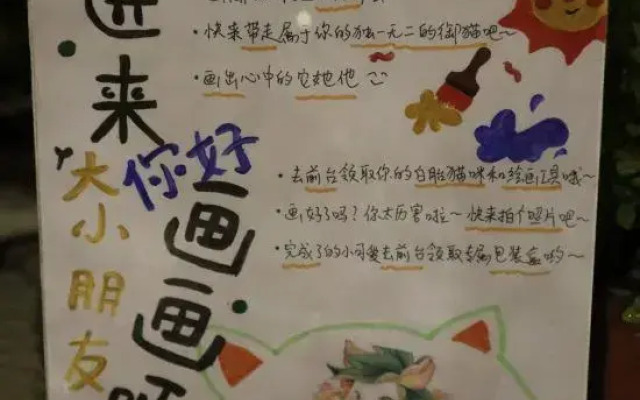 进来画画吧
大小朋友
你好
·快来带走属于你的独一无二的御猫吧~
·画出心中的它她他
·去前台领取你的白胚猫咪和绘画工具哦~
·画好了吗？你太厉害啦~快来拍个照片吧~
·完成了的小可爱去前台领取专属包装盒哟~